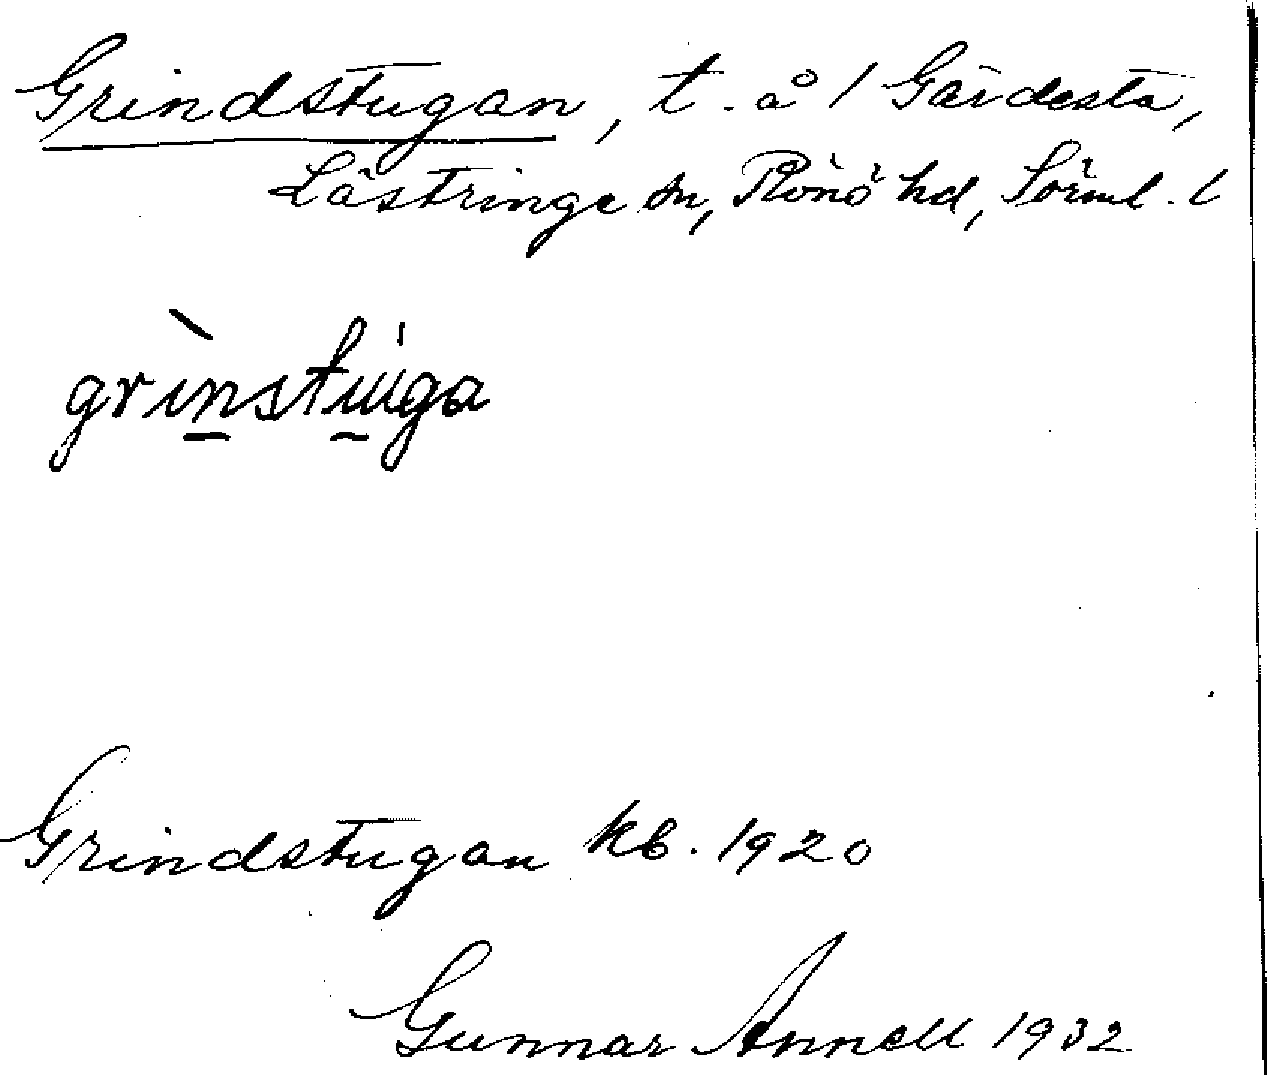 Grindstugan, t. å 1 Gärdesta,
Lästringe sn, Rönö hd, Sörml. l
grinstuga
Grindstugan kb. 1920
Gunnar Annell 1932